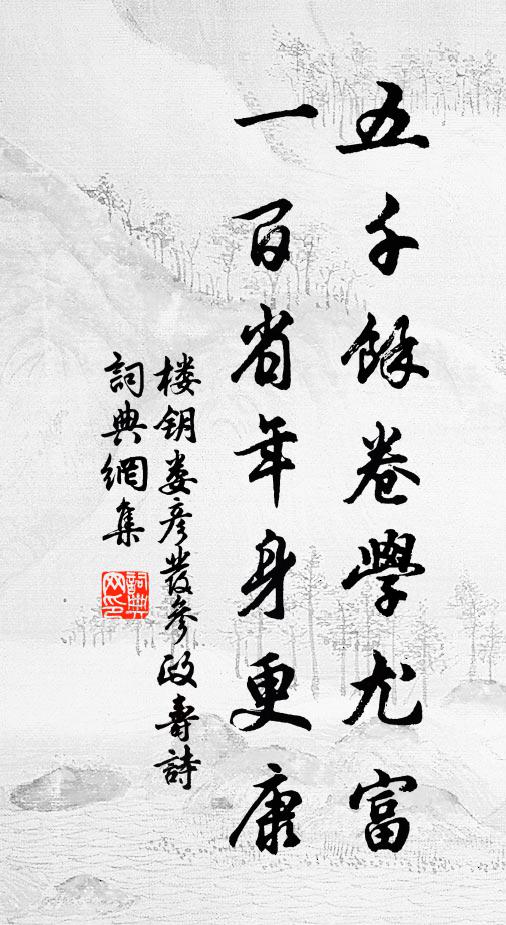 五千餘卷學尤富
一百省年身更康
楼钥娄彦发參政壽詩
詞典網集
詞典網印